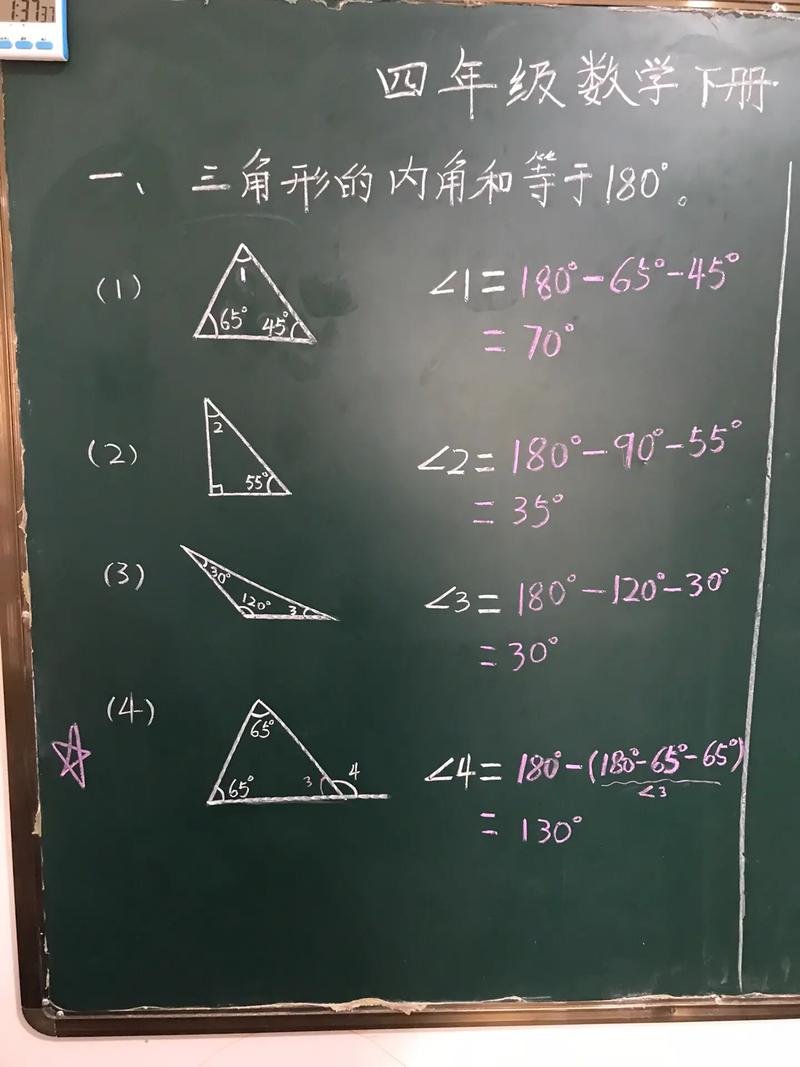 1:37 37
四年级数学下册
一、三角形的内角和等于180°。
(1)
1
65° 45°
∠1=180°-65°-45°
=70°
(2)
2
55°
∠2=180°-90°-55°
=35°
(3)
30°
120° 3
∠3=180°-120°-30°
=30°
(4)
65°
65° 3 4
∠4=180°-(180°-65°-65°)
∠3
=130°